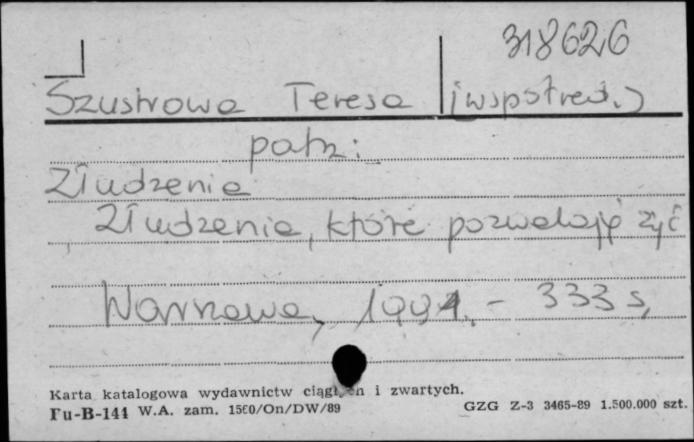 318626
Szustrowa Teresa (współred.)
patrz:
Złudzenia
Złudzenia, które pozwalają żyć
Warszawa, 1991. - 333 s,
Karta katalogowa wydawnictw ciągłych i zwartych.
Pu-B-144 W.A. zam. 1560/On/DW/89 GZG Z-3 3465-89 1.500.000 szt.